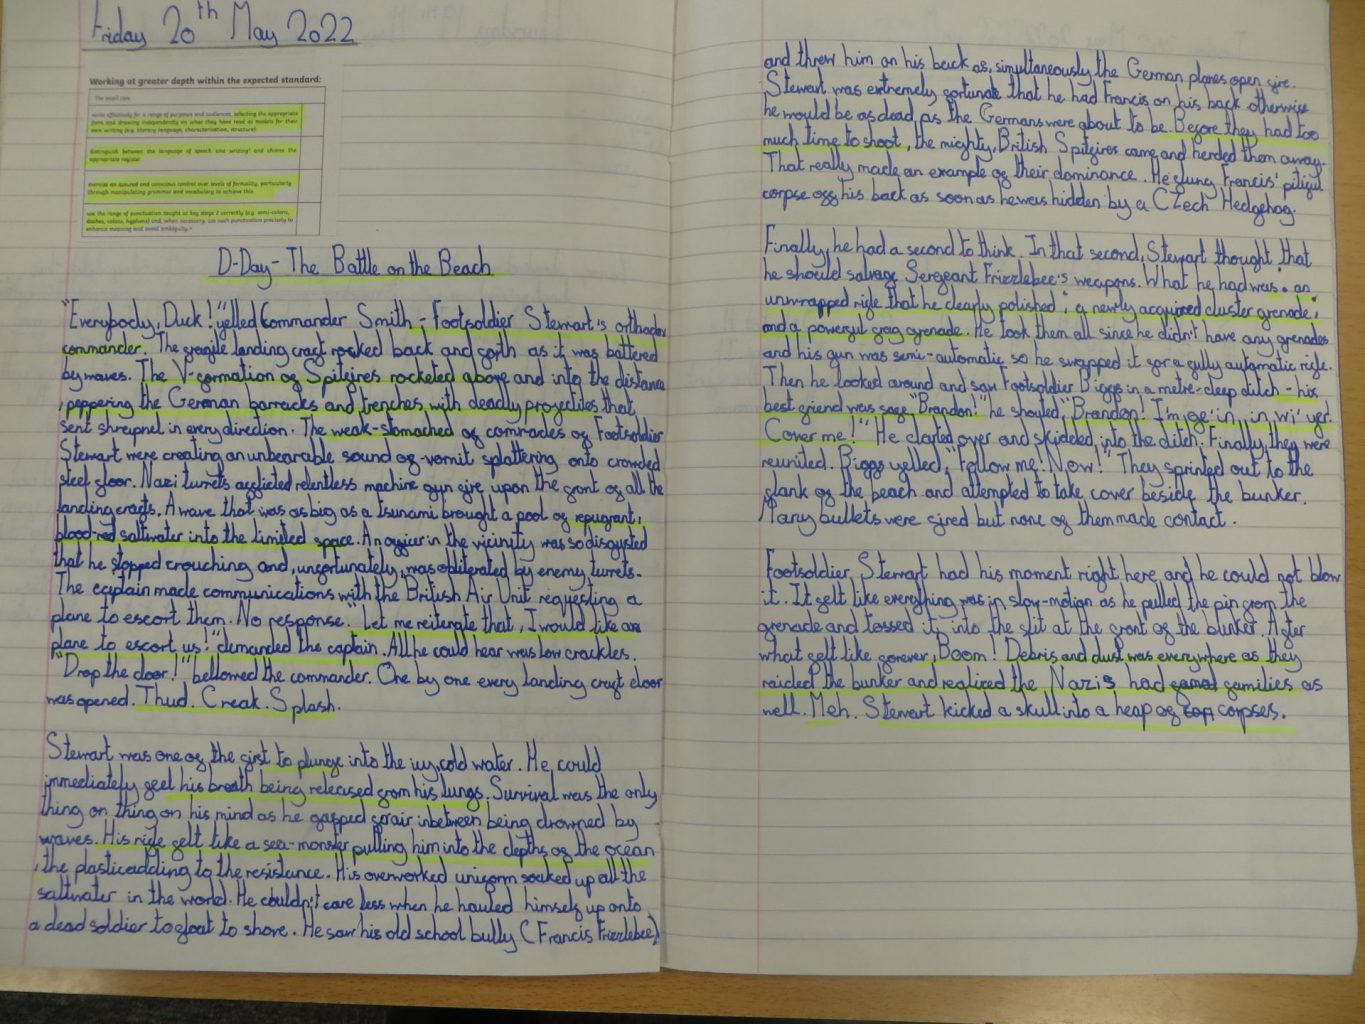 Friday 20th May 2022
Working at greater depth within the expected standard:
The pupil can:
write effectively for a range of purposes and audiences, selecting the appropriate
form and drawing independently on what they have read as models for their
own writing (e.g. literary language, characterisation, structure)
distinguish between the language of speech and writing³ and choose the
appropriate register
exercise an assured and conscious control over levels of formality, particularly
through manipulating grammar and vocabulary to achieve this
use the range of punctuation taught at key stage 2 correctly (e.g. semi-colons,
dashes, colons, hyphens) and, when necessary, use such punctuation precisely to
enhance meaning and avoid ambiguity.
D-Day - The Battle on the Beach
"Everybody, Duck!" yelled Commander Smith - Footsoldier Stewart's orthodox
commander. The fragile landing craft rocked back and forth as it was battered
by waves. The V-formation of Spitfires rocketed above and into the distance
, peppering the German barracks and trenches with deadly projectiles that
sent shrapnel in every direction. The weak-stomached of comrades of Footsoldier
Stewart were creating an unbearable sound of vomit splattering onto crowded
steel floor. Nazi turrets afflicted relentless machine gun fire upon the front of all the
landing crafts. A wave that was as big as a tsunami brought a pool of repugnant,
blood-red saltwater into the limited space. An officer in the vicinity was so disgusted
that he stopped crouching and, unfortunately, was obliterated by enemy turrets.
The captain made communications with the British Air Unit requesting a
plane to escort them. No response. "Let me reiterate that, I would like a
plane to escort us!" demanded the captain. All he could hear was low crackles.
"Drop the door!" bellowed the commander. One by one every landing craft door
was opened. Thud. Creak. Splash.
Stewart was one of the first to plunge into the icy, cold water. He could
immediately feel his breath being released from his lungs. Survival was the only
thing on thing on his mind as he gasped for air inbetween being drowned by
waves. His rifle felt like a sea-monster pulling him into the depths of the ocean
, the plastic adding to the resistance. His overworked uniform soaked up all the
saltwater in the world. He couldn't care less when he hauled himself up onto
a dead soldier to float to shore. He saw his old school bully (Francis Frizzlebee)
and threw him on his back as, simultaneously, the German planes open fire.
Stewart was extremely fortunate that he had Francis on his back otherwise
he would be as dead as the Germans were about to be. Before they had too
much time to shoot, the mighty, British Spitfires came and herded them away.
That really made an example of their dominance. He flung Francis' pitiful
corpse off his back as soon as he was hidden by a Czech Hedgehog.
Finally, he had a second to think. In that second, Stewart thought that
he should salvage Sergeant Frizzlebee's weapons. What he had was: an
unwrapped rifle that he clearly polished; a newly acquired cluster grenade;
and a powerful frag grenade. He took them all since he didn't have any grenades
and his gun was semi-automatic so he swapped it for a fully automatic rifle.
Then he looked around and saw Footsoldier Biggs in a metre-deep ditch - his
best friend was safe. "Brandon!" he shouted, "Brandon! I'm je'in, in wi' ye!
Cover me!" He darted over and skidded into the ditch. Finally, they were
reunited. Biggs yelled, "Follow me! Now!" They sprinted out to the
flank of the beach and attempted to take cover beside the bunker.
Many bullets were fired but none of them made contact.
Footsoldier Stewart had his moment right here and he could not blow
it. It felt like everything was in slow-motion as he pulled the pin from the
grenade and tossed it into the slit at the front of the bunker. After
what felt like forever, Boom! Debris and dust was everywhere as they
raided the bunker and realized the Nazis had families as
well. Meh. Stewart kicked a skull into a heap of corpses.